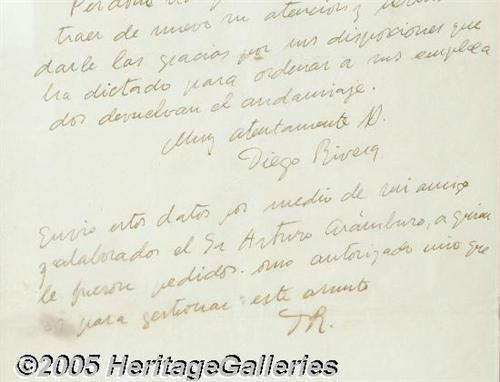 traer de nuevo su atención y
darle las gracias por sus disposiciones que
ha dictado para ordenar a sus emplea
dos devuelvan el andamiaje.
Muy atentamente
Diego Rivera
Envio estos datos por medio de mi amigo
el Sr Arturo Arámburo, a quien
le fueron pedidos. como autorizado mio que
es para gestionar este asunto
DR.
©2005 HeritageGalleries